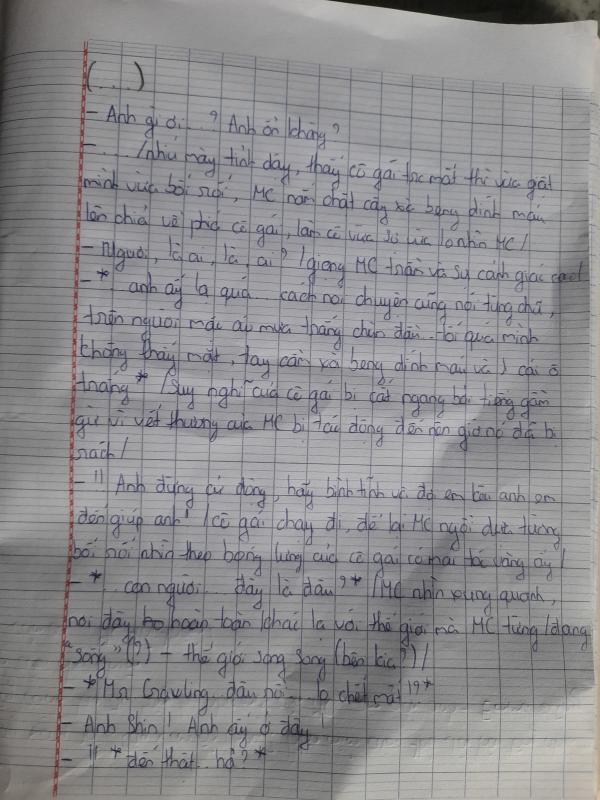 (...)
- Anh gì ơi...? Anh ổn không?
- ... /nhíu mày tỉnh dậy, thấy cô gái trc mặt thì vừa gật
mình vừa bối rối, MC nắm chặt cây xà beng dính máu
lên chĩa về phía cô gái, làm cô vừa sợ vừa lo nhìn MC/
- Ngươi, là ai, là, ai? /giọng MC trầm và sự cảnh giác cao/
- *... anh ấy lạ quá... cách nói chuyện cứng nói từng chữ,
trên người mặc áo mưa trắng chùm đầu.. tối quá mình
không thấy mặt, tay cầm xà beng dính máu và 1 cái ô
trắng * /Suy nghĩ của cô gái bị cắt ngang bởi tiếng gầm
gừ vì vết thương của MC bị tác động đến nên giờ nó đã bị
rách/
- !! Anh đừng cử động, hãy bình tĩnh và đợi em kêu anh em
đến giúp anh! /cô gái chạy đi, để lại MC ngồi dựa tường
bối rối nhìn theo bóng lưng của cô gái có mái tóc vàng ấy/
- *... con người... đây là đâu?* /MC nhìn xung quanh,
nơi đây hoàn toàn khác lạ với thế giới mà MC từng/đang
"sống" (?) - thế giới song song (bên kia?)/
- *Mr Crawling.. đâu rồi... bị chết mất!?*
- Anh Shin! Anh ấy ở đây
- !! *đến thật.. hả?*